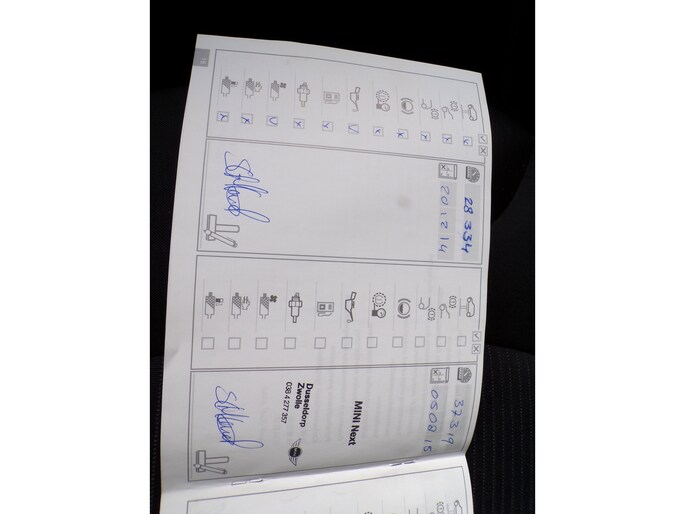 28 334
20 12 14
37319
050815
MINI Next
Dusseldorp
Zwolle
038 4 277 357